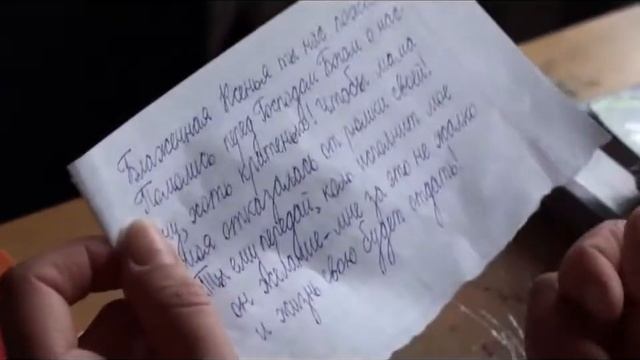 Блаженная Ксенья ты нас
Помолись перед Господом Богом о нас
хоть кратенько! Чтобы мама
отказалась от рюмки своей!
Ты ему передай, коль исполнит мое
он желание – мне за это не жалко
и жизнь свою будет отдать!